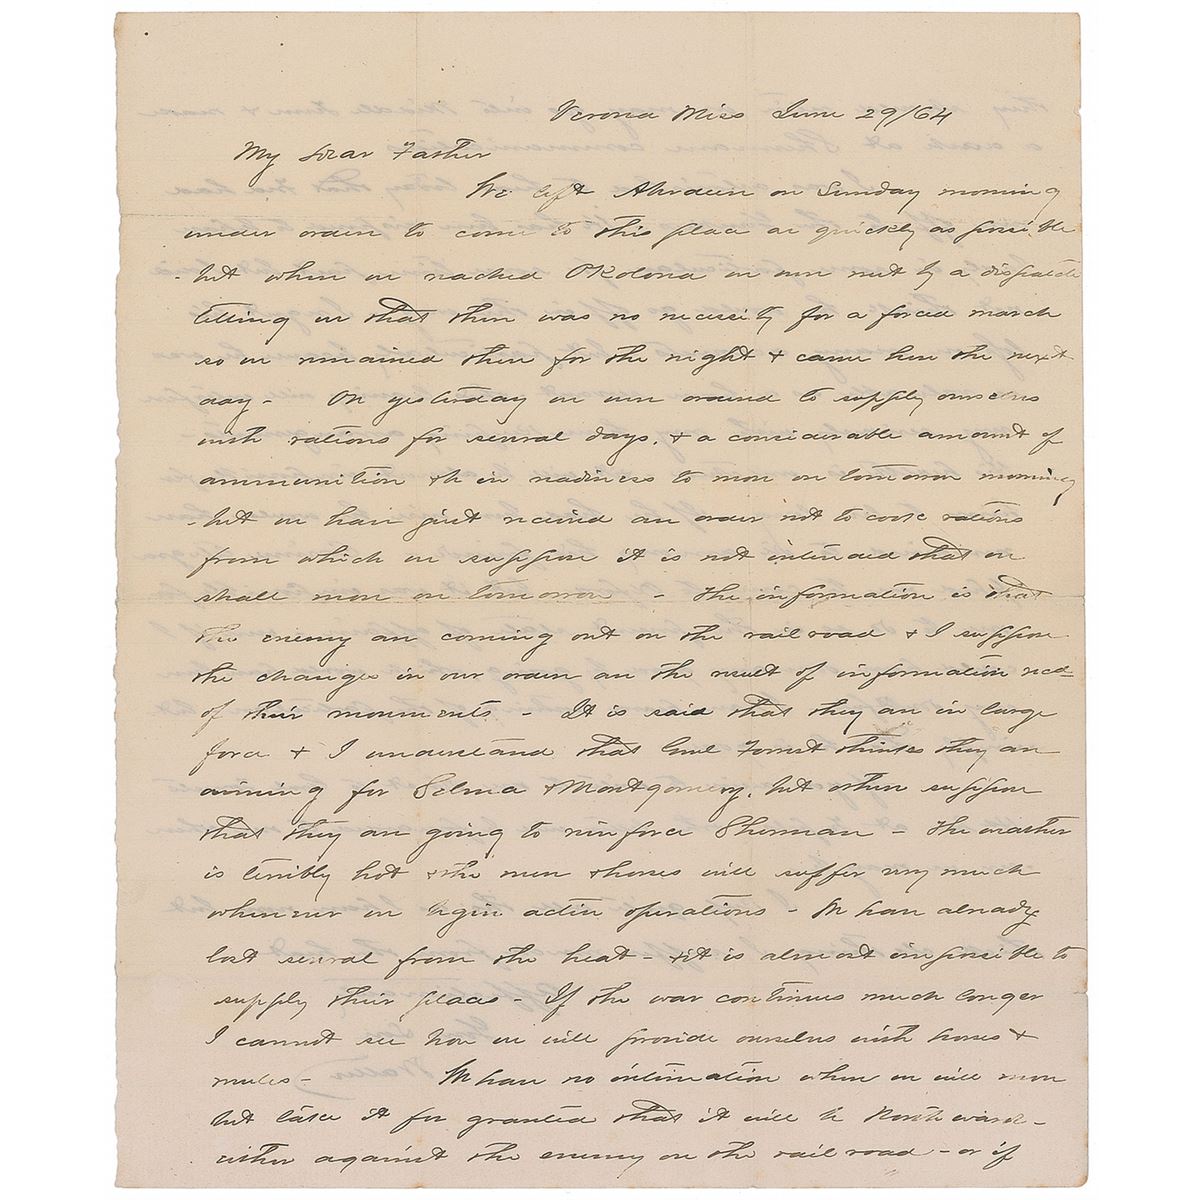 Verona Miss June 29/64
My dear Father
We left Aberdeen on Sunday morning
under orders to come to this place as quickly as possible
- but when we reached Okolona we were met by a dispatch
telling us that there was no necessity for a forced march
so we remained there for the night & came here the next
day - On yesterday we were ordered to supply ourselves
with rations for several days, & a considerable amount of
ammunition & be in readiness to move on tomorrow morning
- but we have just received an order not to cook rations
from which we suppose it is not intended that we
shall move on tomorrow - The information is that
the enemy are coming out on the rail road & I suppose
the changes in our orders are the result of information recd
of their movements - It is said that they are in large
force & I understand that Genl Forrest thinks they are
aiming for Selma & Montgomery, but others suppose
that they are going to reinforce Sherman - The weather
is terribly hot & the men & horses will suffer very much
whenever we begin active operations - We have already
lost several from the heat - & it is almost impossible to
supply their places - If the war continues much longer
I cannot see how we will provide ourselves with horses &
mules - We have no intimation when we will move
but take it for granted that it will be Northward -
either against the enemy on the rail road - or if